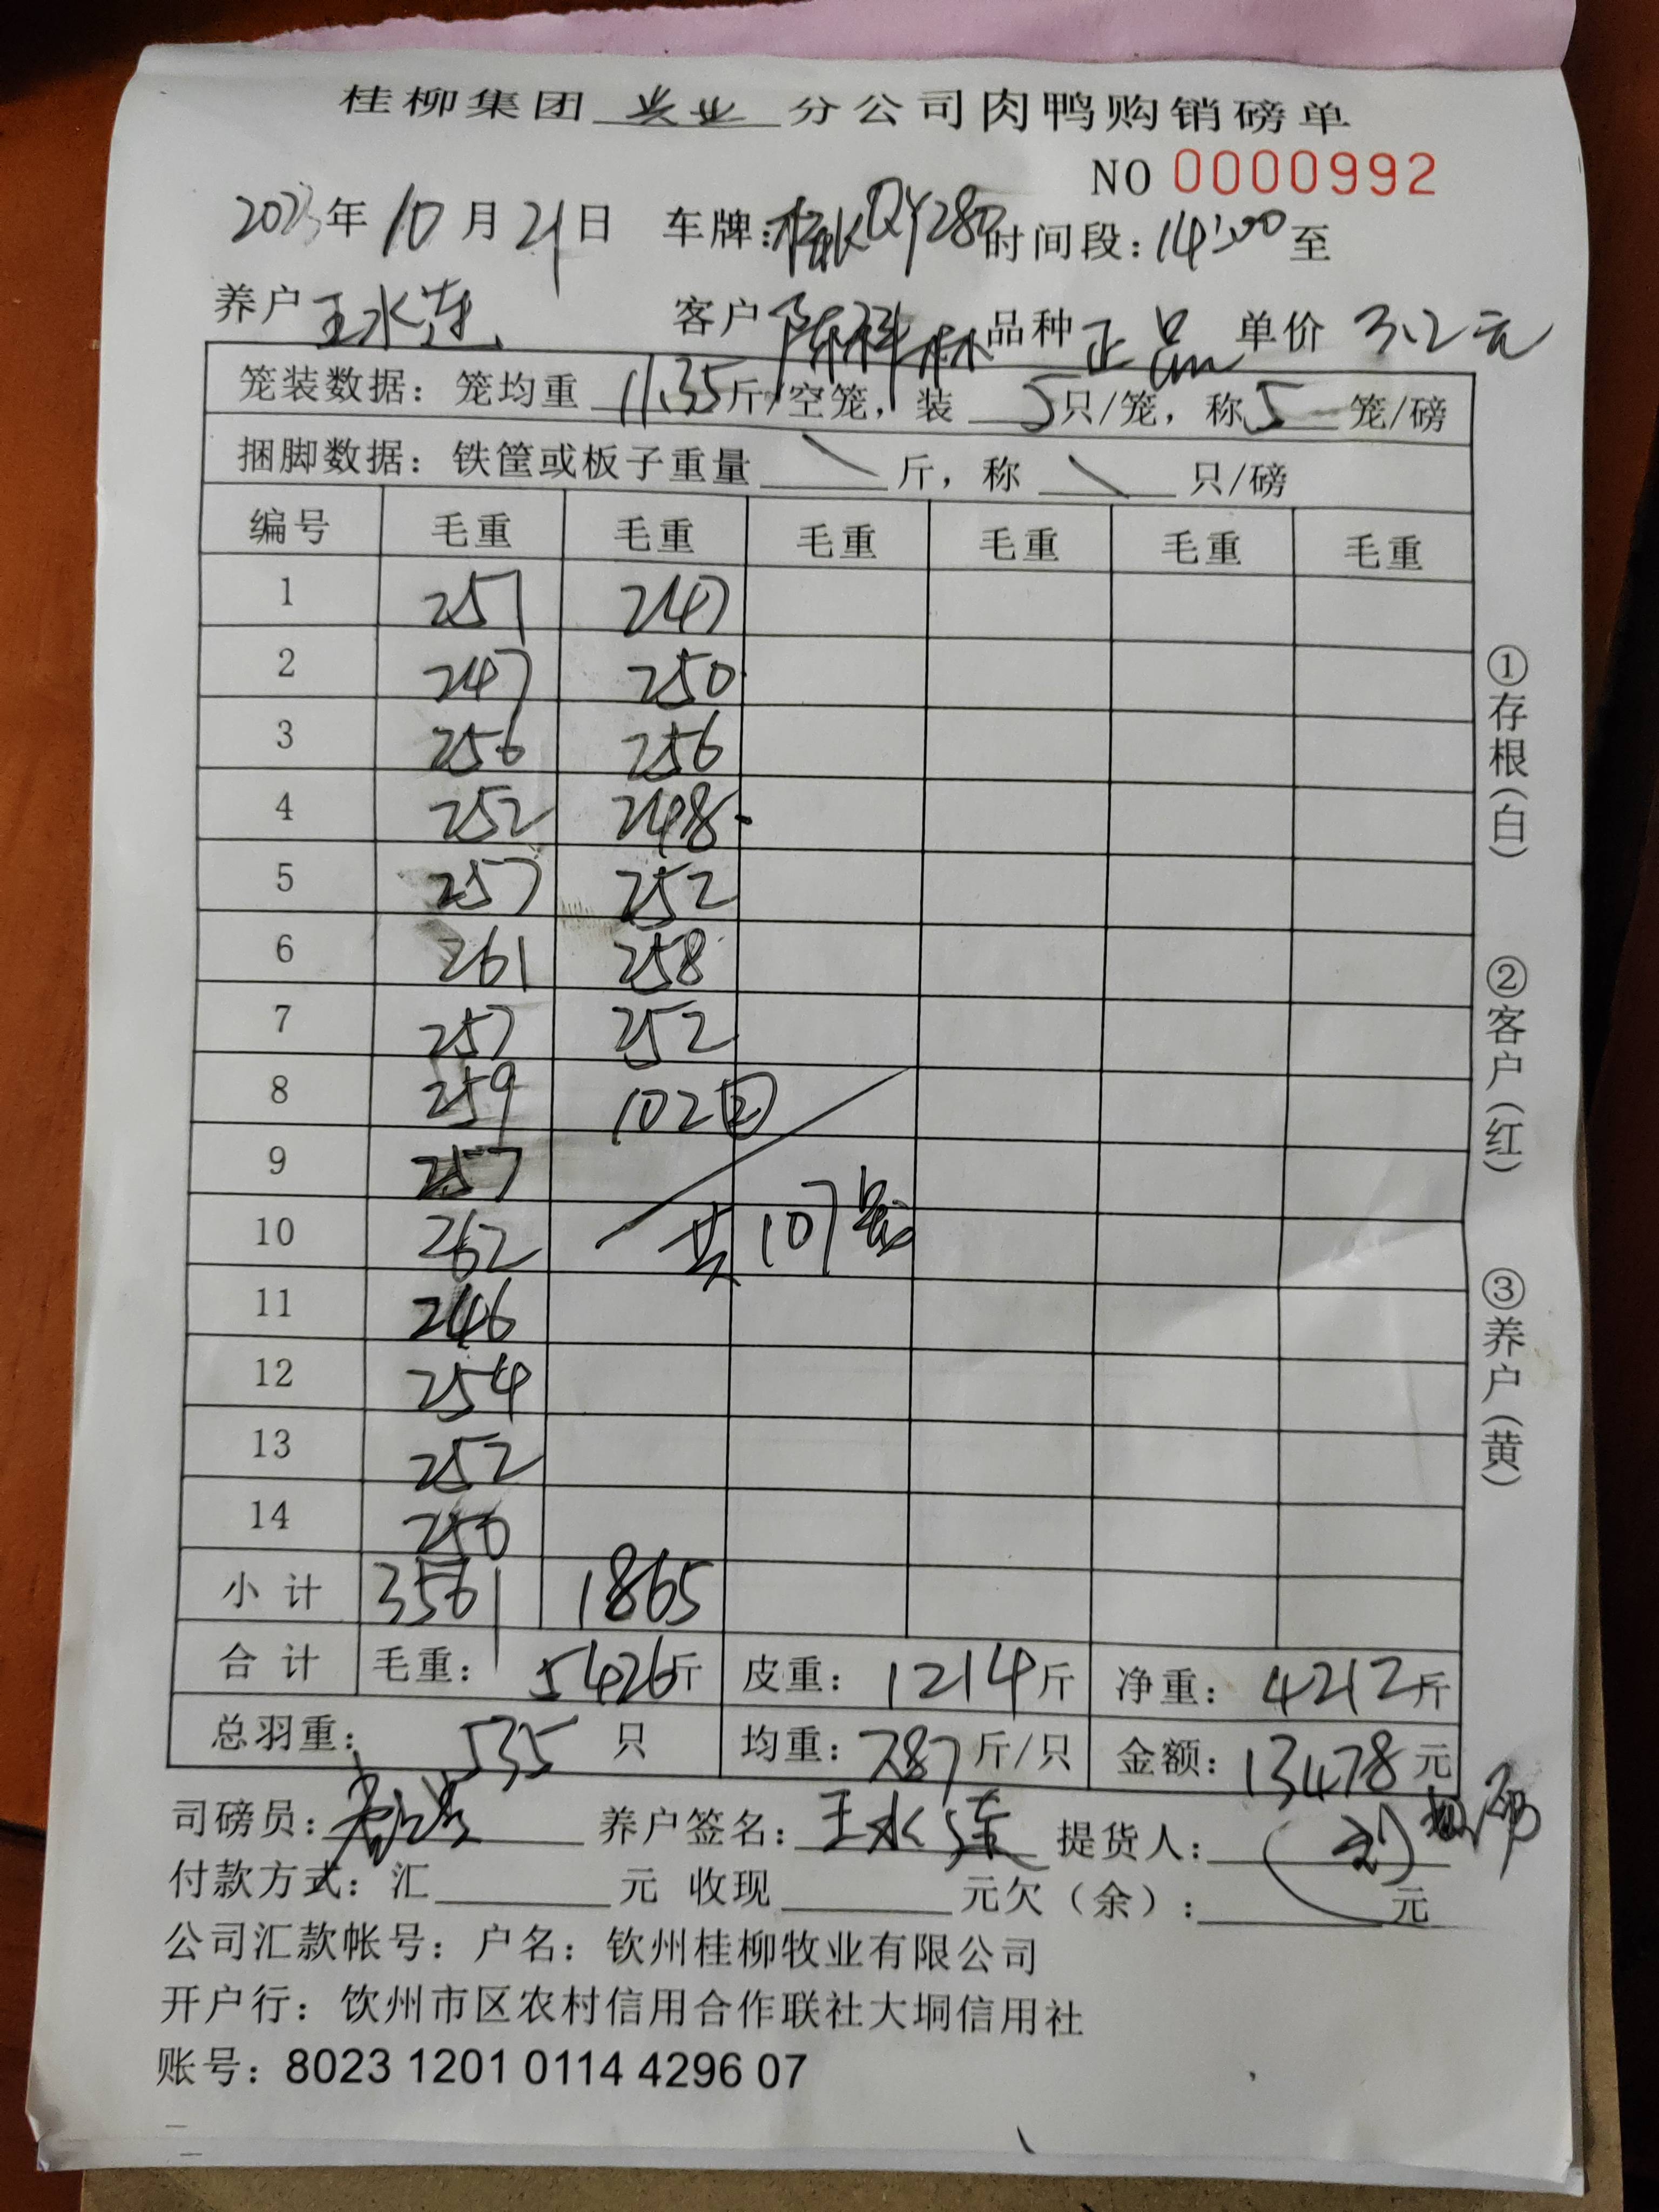 桂柳集团 兴业 分公司肉鸭购销磅单
NO 0000992
2023年 10 月 21 日 车牌:桂KQY280 时间段:14:00 至
养户 王水连 客户 品种 正品 单价 3.2元
笼装数据:笼均重 11.35 斤/空笼,装 5 只/笼,称 5 笼/磅
捆脚数据:铁筐或板子重量 \ 斤,称 \ 只/磅
编号 毛重 毛重 毛重 毛重 毛重 毛重
1 251 247
2 247 250
3 256 256
4 252 248
5 257 252
6 261 258
7 257 252
8 259 102②
9 257
10 262 共107笼
11 246
12 254
13 252
14 250
小计 3561 1865
合计 毛重: 5426斤 皮重: 1214斤 净重: 4212斤
总羽重: 535 只 均重: 7.87 斤/只 金额: 13478元
司磅员: 养户签名: 王水连 提货人:
付款方式:汇 元 收现 元欠(余): 元
公司汇款帐号:户名:钦州桂柳牧业有限公司
开户行:钦州市区农村信用合作联社大垌信用社
账号:8023 1201 0114 4296 07
①存根(白)
②客户(红)
③养户(黄)